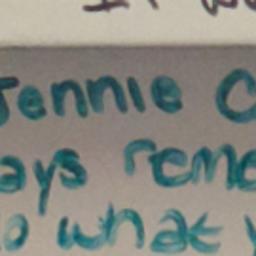 Jennie C
ays reme
o what y